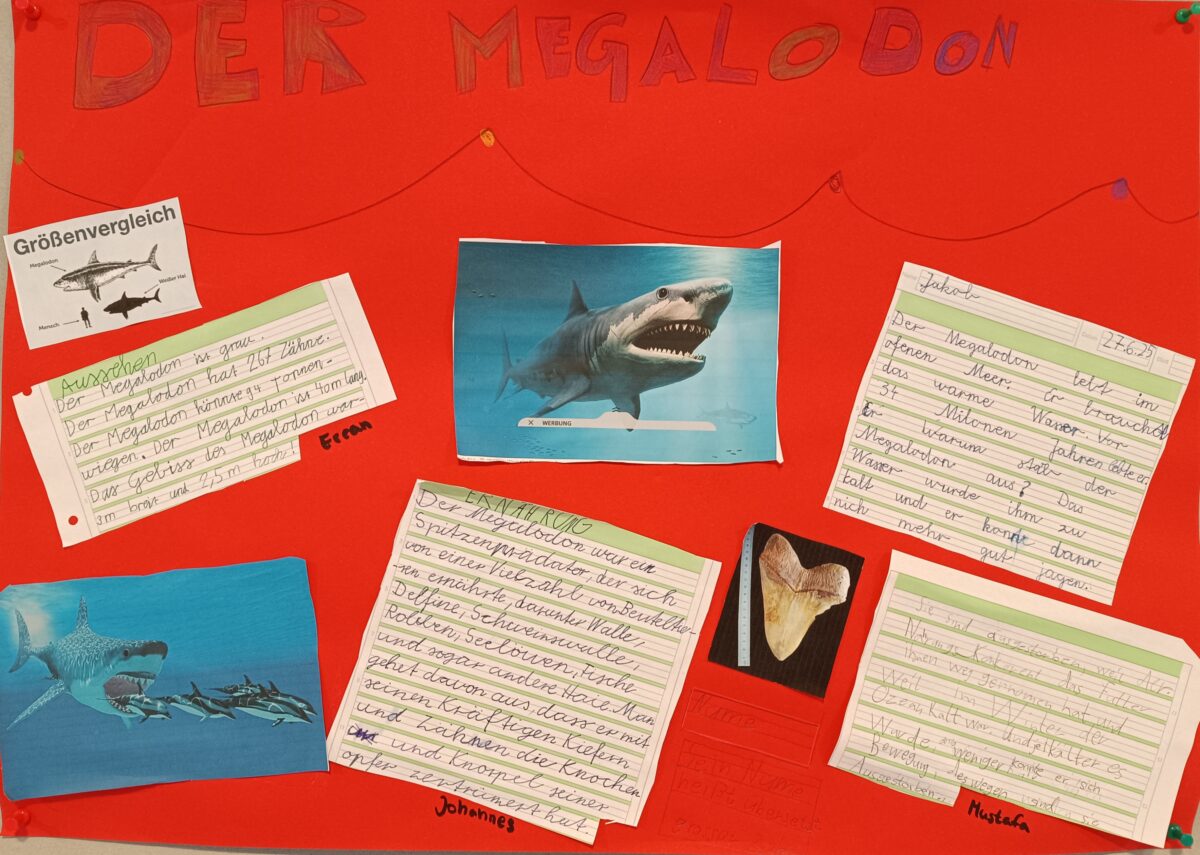 DER MEGALODON
Größenvergleich
Megalodon
Weißer Hai
Mensch
Aussehen
Der Megalodon ist grau.
Der Megalodon hat 267 Zähne.
Der Megalodon könnse94 Tonnen-
wiegen. Der Megalodon ist 40m lang.
Das Gebiss des Megalodon war-
3m breit und 2,5m hoch!
Ercan
WERBUNG
Jakob
27.6.25
Der Megalodon lebt im
ofenen Meer. Er braucht
das warme Wasser. Vor
34 Milonen Jahren lebte er.
Er Warum starb der
Megalodon aus? Das
Wasser wurde ihm zu
kalt und er konnte dann
nich mehr gut jagen.
ERNÄHRUNG
Der Megalodon war ein
Spitzenprädator, der sich
von einer Vielzahl von Beutetie-
ren ernährte, darunter Walle,
Delfine, Schweinswalle,
Robben, Seelöwen, Fische
und sogar andere Haie. Man
gehet davon aus, dass er mit
seinen Kräftigen Kiefern
und Zähnen die Knochen
und Knorpel seiner
opfer zertrümert hat.
Johannes
Sie sind ausgestorben, weil
Nahrungs Konkurenz das Futter
Ihnen weg genommen hat und
Weil im Winter der
Ozean Kalt war. Und Kälter es
Wurde, weniger konnte er sich
Bewegung, deswegen sind sie
Ausgestorben.
Mustafa